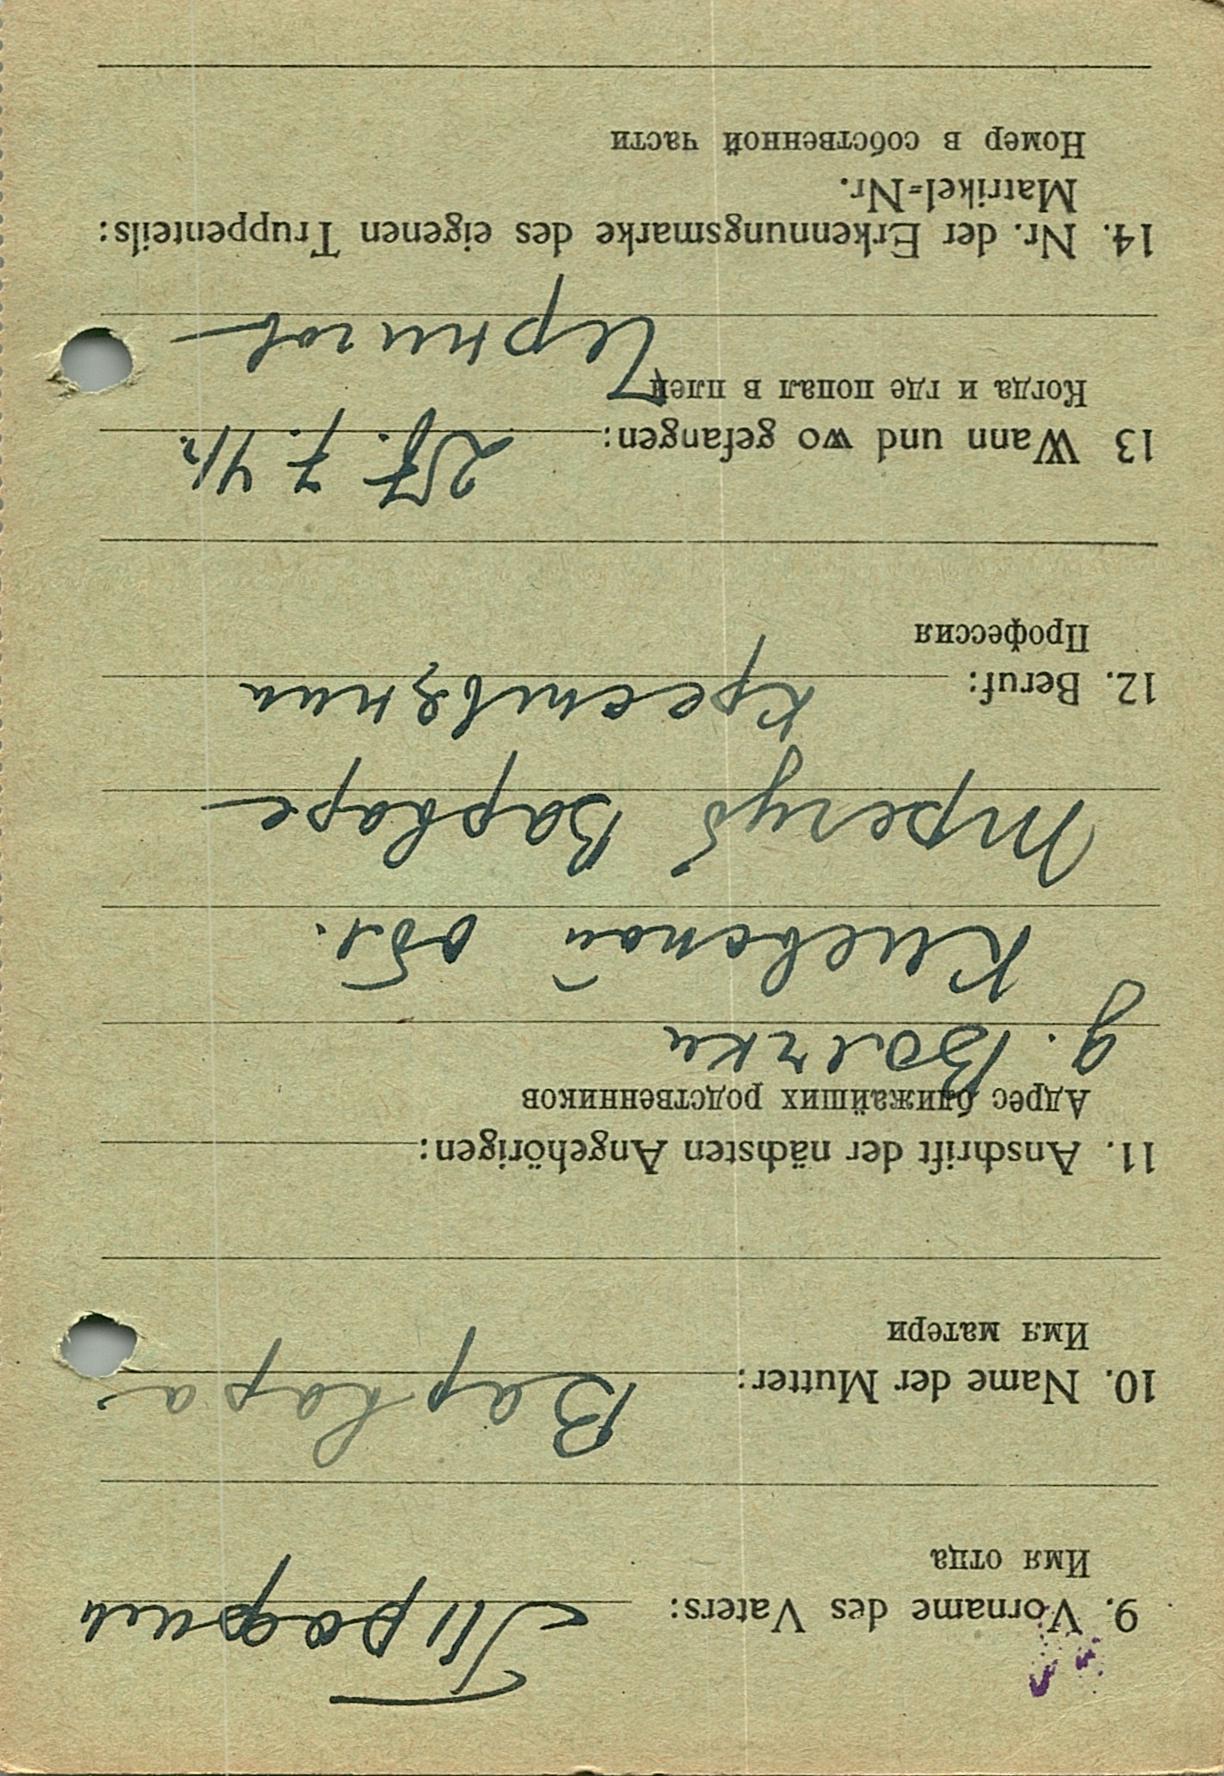 9. Vorname des Vaters: Трофим
Имя отца
10. Name der Mutter: Варвара
Имя матери
11. Anschrift der nächsten Angehörigen:
Адрес ближайших родственников
д. Волчки
Киевской обл.
Трегуб Варваре
12. Beruf: крестьянин
Профессия
13 Wann und wo gefangen:
Когда и где попал в плен
Чернигов
14. Nr. der Erkennungsmarke des eigenen Truppenteils:
Matrikel=Nr.
Номер в собственной части